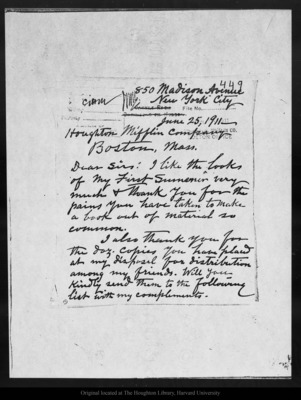 449
850 Madison Avenue
New York City
June 25, 1911
Houghton Mifflin Company
Boston, Mass.
Dear Sirs: I like the looks
of My First Summer very
much & thank you for the
pains you have taken to make
a book out of material so
common.
I also thank you for
the doz. copies you have placed
at my disposal for distribution
among my friends. Will you
kindly send them to the following
list with my compliments.
Original located at The Houghton Library, Harvard University